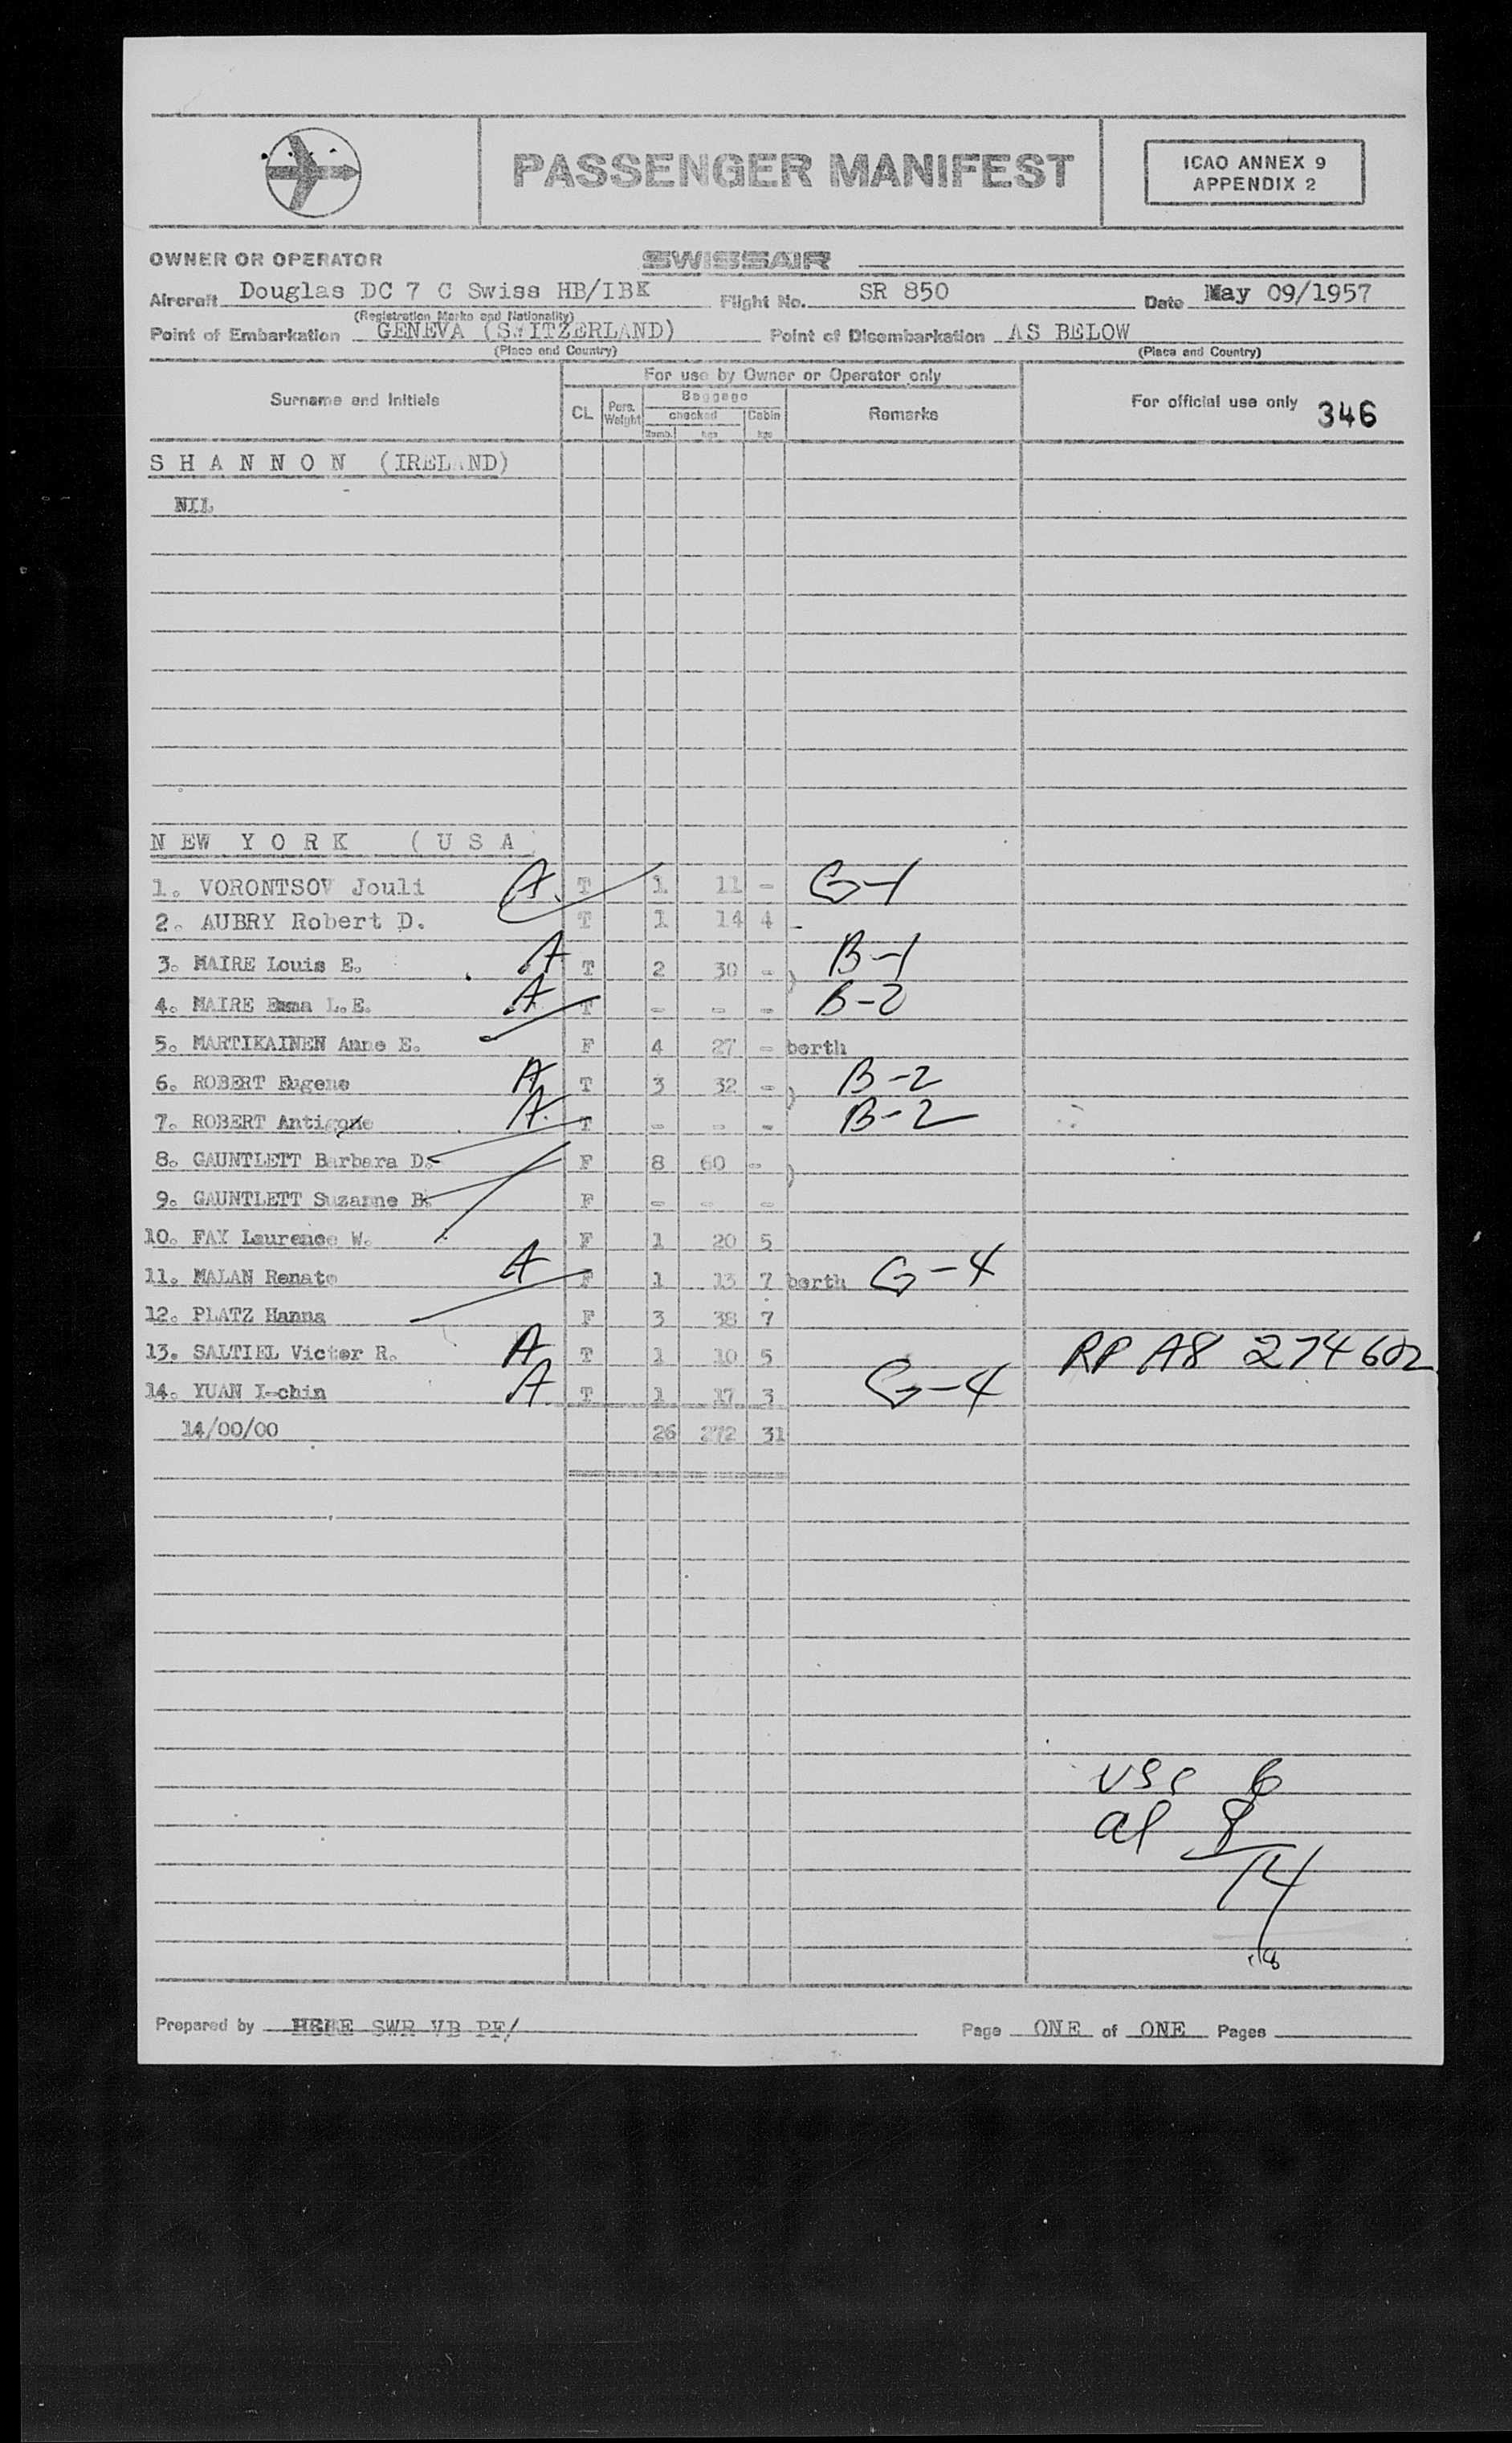 PASSENGER MANIFEST
ICAO ANNEX 9
APPENDIX 2
OWNER OR OPERATOR SWISSAIR
Aircraft Douglas DC 7 C Swiss HB/IBK Flight No. SR 850 Date May 09/1957
(Registration Marks and Nationality)
Point of Embarkation GENEVA (SWITZERLAND) Point of Disembarkation AS BELOW
(Place and Country) (Place and Country)
For use by Owner or Operator only
Surname and Initials CL Pers. Weight Baggage checked Numb. kgs Cabin kgs Remarks For official use only 346
S H A N N O N (IRELAND)
NIL
N E W Y O R K ( U S A
1. VORONTSOV Jouli A. T 1 11 - G-1
2. AUBRY Robert D. T 1 14 4 -
3. MAIRE Louis E. A T 2 30 - ) B-1
4. MAIRE Emma L.E. A T - - - B-2
5. MARTIKAINEN Anne E. F 4 27 - berth
6. ROBERT Eugene A T 3 32 - ) B-2
7. ROBERT Antigone A. T - - - B-2
8. GAUNTLETT Barbara D. F 8 60 - )
9. GAUNTLETT Suzanne B. F - - -
10. FAY Laurence W. F 1 20 5
11. MALAN Renato A F 1 13 7 berth G-4
12. PLATZ Hanna F 3 38 7
13. SALTIEL Victor R. A T 1 10 5 RP A8 274602
14. YUAN I-chin A T 1 17 3 G-4
14/00/00 26 272 31
USC 6
al 8
14
Prepared by SWR VB PF/ Page ONE of ONE Pages